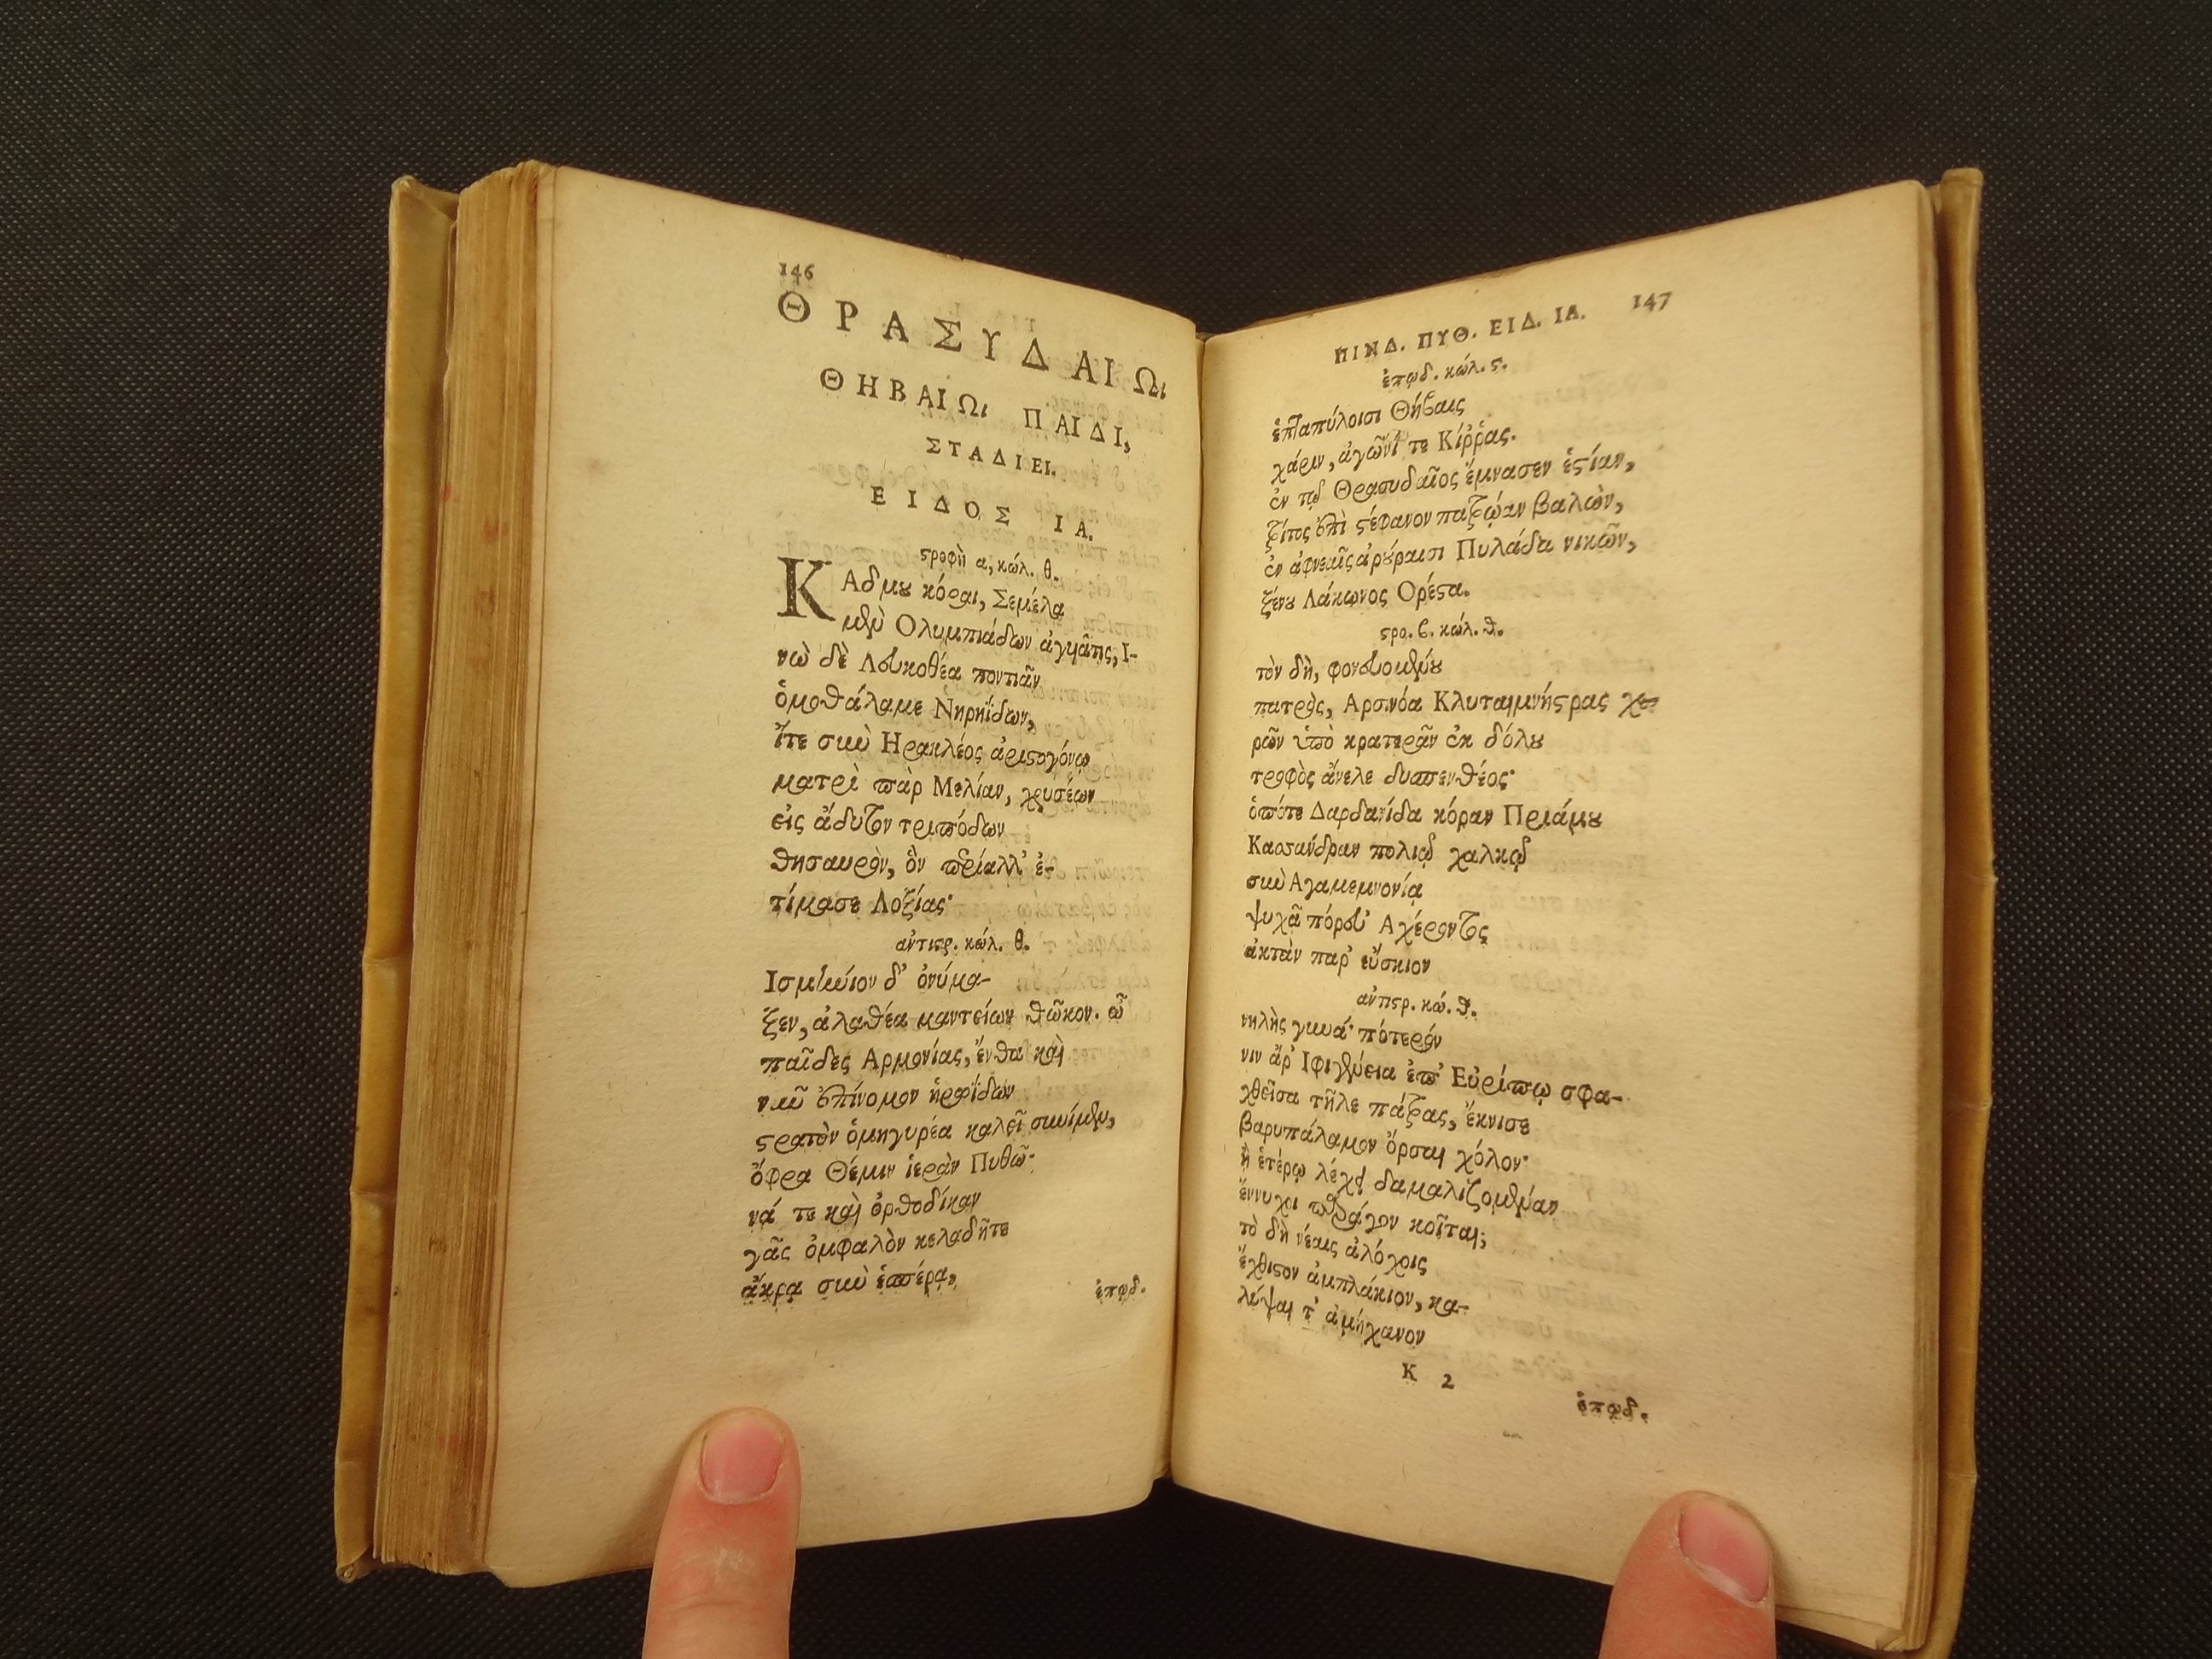 146
ΘΡΑΣΥΔΑΙΩι
ΘΗΒΑΙΩι ΠΑΙΔΙ,
ΣΤΑΔΙΕΙ.
ΕΙΔΟΣ ΙΑ.
στροφὴ α, κώλ. θ.
ΚΑδμου κόραι, Σεμέλα
μὲν Ολυμπιάδων ἀγυιᾶτις, Ι-
νὼ δὲ Λευκοθέα ποντιᾶν
ὁμοθάλαμε Νηρηΐδων,
ἴτε σὺν Ηρακλέος ἀριστογόνῳ
ματρὶ πὰρ Μελίαν, χρυσέων
εἰς ἄδυτον τριπόδων
θησαυρὸν, ὃν περίαλλ' ἐ-
τίμασε Λοξίας·
αντιστρ. κώλ. θ.
Ισμήνιον δ' ὀνύμα-
ξεν, ἀλαθέα μαντείων θῶκον. ὦ
παῖδες Αρμονίας, ἔνθα καὶ
νῦν ἐπίνομον ἡρωΐδων
στρατὸν ὁμηγυρέα καλεῖ συνίμεν,
ὄφρα Θέμιν ἱερὰν Πυθῶ-
νά τε καὶ ὀρθοδίκαν
γᾶς ὀμφαλὸν κελαδῆτε
ἄκρᾳ σὺν ἑσπέρᾳ,
ἐπῳδ.
ΠΙΝΔ. ΠΥΘ. ΕΙΔ. ΙΑ. 147
ἐπῳδ. κώλ. ς.
ἑπταπύλοισι Θήβαις
χάριν, ἀγῶνί τε Κίῤῥας.
ἐν τῷ Θρασυδαῖος ἔμνασεν ἑστίαν,
τρίτος ἐπὶ στέφανον πατρῴαν βαλὼν,
ἐν ἀφνεαῖς ἀρούραισι Πυλάδα νικῶν,
ξένου Λάκωνος Ορέστα.
στρο. β. κώλ. θ.
τὸν δὴ, φονευομένου
πατρὸς, Αρσινόα Κλυταιμνήστρας χει-
ρῶν ὑπὸ κρατερᾶν ἐκ δόλου
τροφὸς ἄνελε δυσπενθέος·
ὁπότε Δαρδανίδα κόραν Πριάμου
Κασσάνδραν πολιῷ χαλκῷ
σὺν Αγαμεμνονίᾳ
ψυχᾷ πόρευσ' Αχέροντος
ἀκτὰν παρ' εὔσκιον
αντιστρ. κώ. θ.
νηλὴς γυνά· πότερόν
νιν ἄρ' Ιφιγένεια ἐπ' Εὐρίπῳ σφα-
χθεῖσα τῆλε πάτρας, ἔκνισε
βαρυπάλαμον ὄρσαι χόλον·
ἢ ἑτέρῳ λέχει δαμαλιζομέναν
ἔννυχοι πάραγον κοῖται;
τὸ δὴ νέαις ἀλόχοις
ἔχθιστον ἀμπλάκιον, κα-
λύψαι τ' ἀμήχανον
Κ 2
ἐπῳδ.